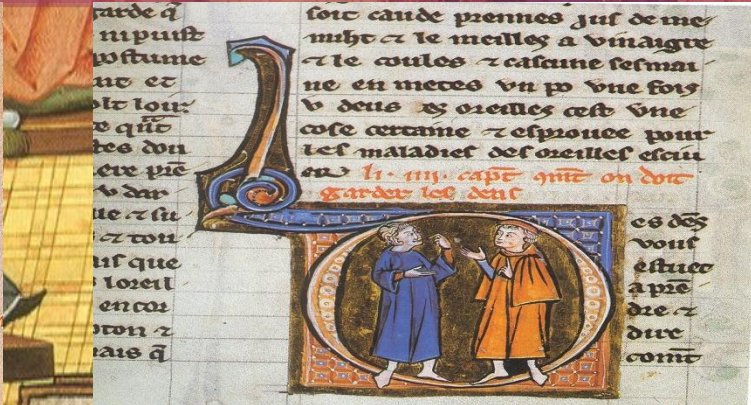 garde q̃
ni puist
postume
ut et
olt loīz
e q̃nt
tes dou
ere prē
v dar
ue ⁊ su
⁊ tou
uis que
loreil
encor
pton ⁊
rais q̃
soit caude prennes jus de me
miht ⁊ le meilles a vinaigre
⁊ le coules ⁊ cascune semai
ne en metes vn po vne fois
v deus es oreilles cest vne
cose certaine ⁊ esprouee pour
les maladies des oreilles esciu
er
li · iiii · capt̃ qm̃t on doit
garder les dens
es dēs
vous
estuet
aprē
dre ⁊
dire
com̃t